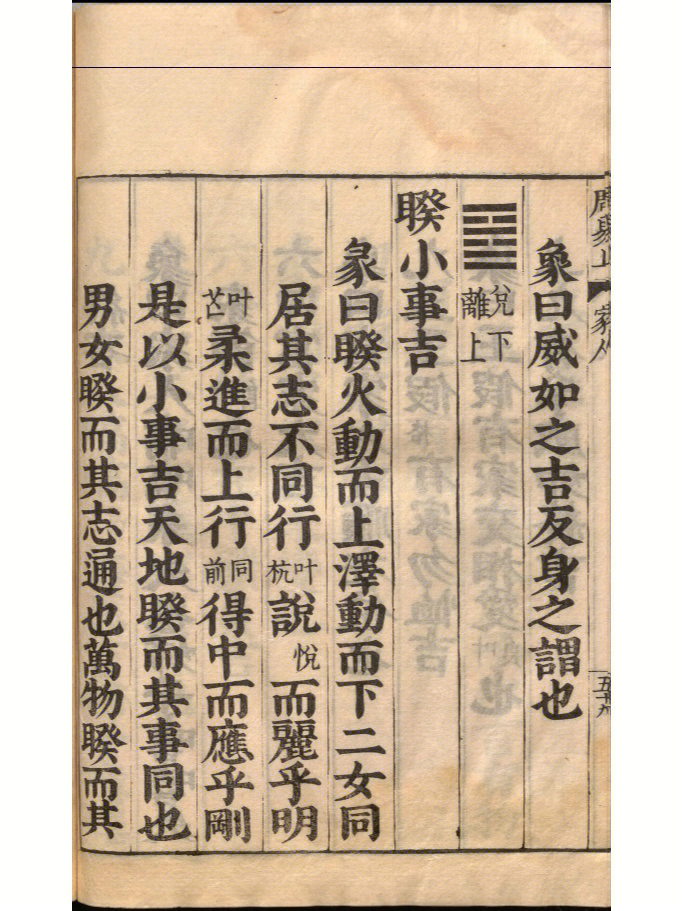 周易上 家人 五十九
象曰威如之吉反身之謂也
兌下離上
睽小事吉
彖曰睽火動而上澤動而下二女同
居其志不同行叶杭說悅而麗乎明
叶芒柔進而上行同前得中而應乎剛
是以小事吉天地睽而其事同也
男女睽而其志通也萬物睽而其